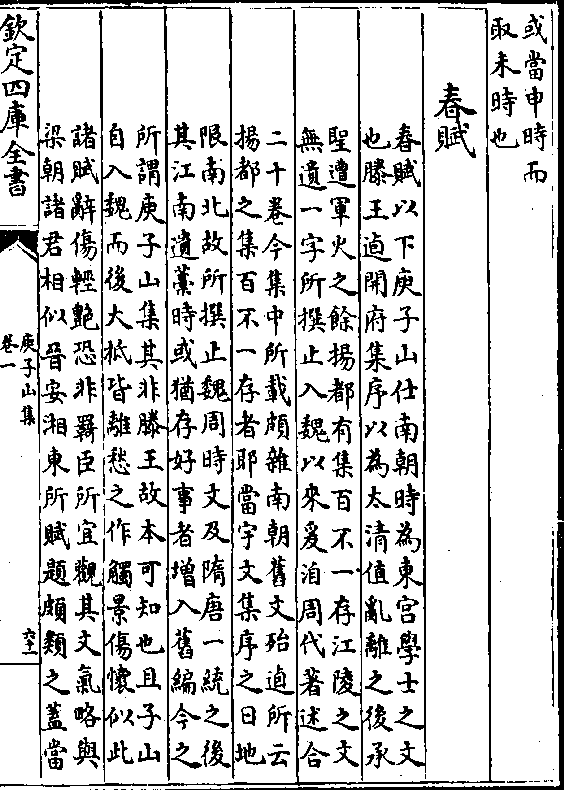 或當申時而
取未時也
春賦
春賦以下庾子山仕南朝時為東宮學士之文
也滕王逌開府集序以為太清值亂離之後承
聖遭軍火之餘揚都有集百不一存江陵之文
無遺一字所撰止入魏以來爰洎周代著述合
二十卷今集中所載頗雜南朝舊文殆逌所云
揚都之集百不一存者耶當宇文集序之日地
限南北故所撰止魏周時文及隋唐一統之後
其江南遺藁時或猶存好事者增入舊編今之
所謂庾子山集其非滕王故本可知也且子山
自入魏而後大抵皆離愁之作觸景傷懷似此
諸賦辭傷輕艷恐非羇臣所宜觀其文氣略與
梁朝諸君相似晉安湘東所賦題頗類之蓋當
欽定四庫全書
庾子山集
卷一
六十一